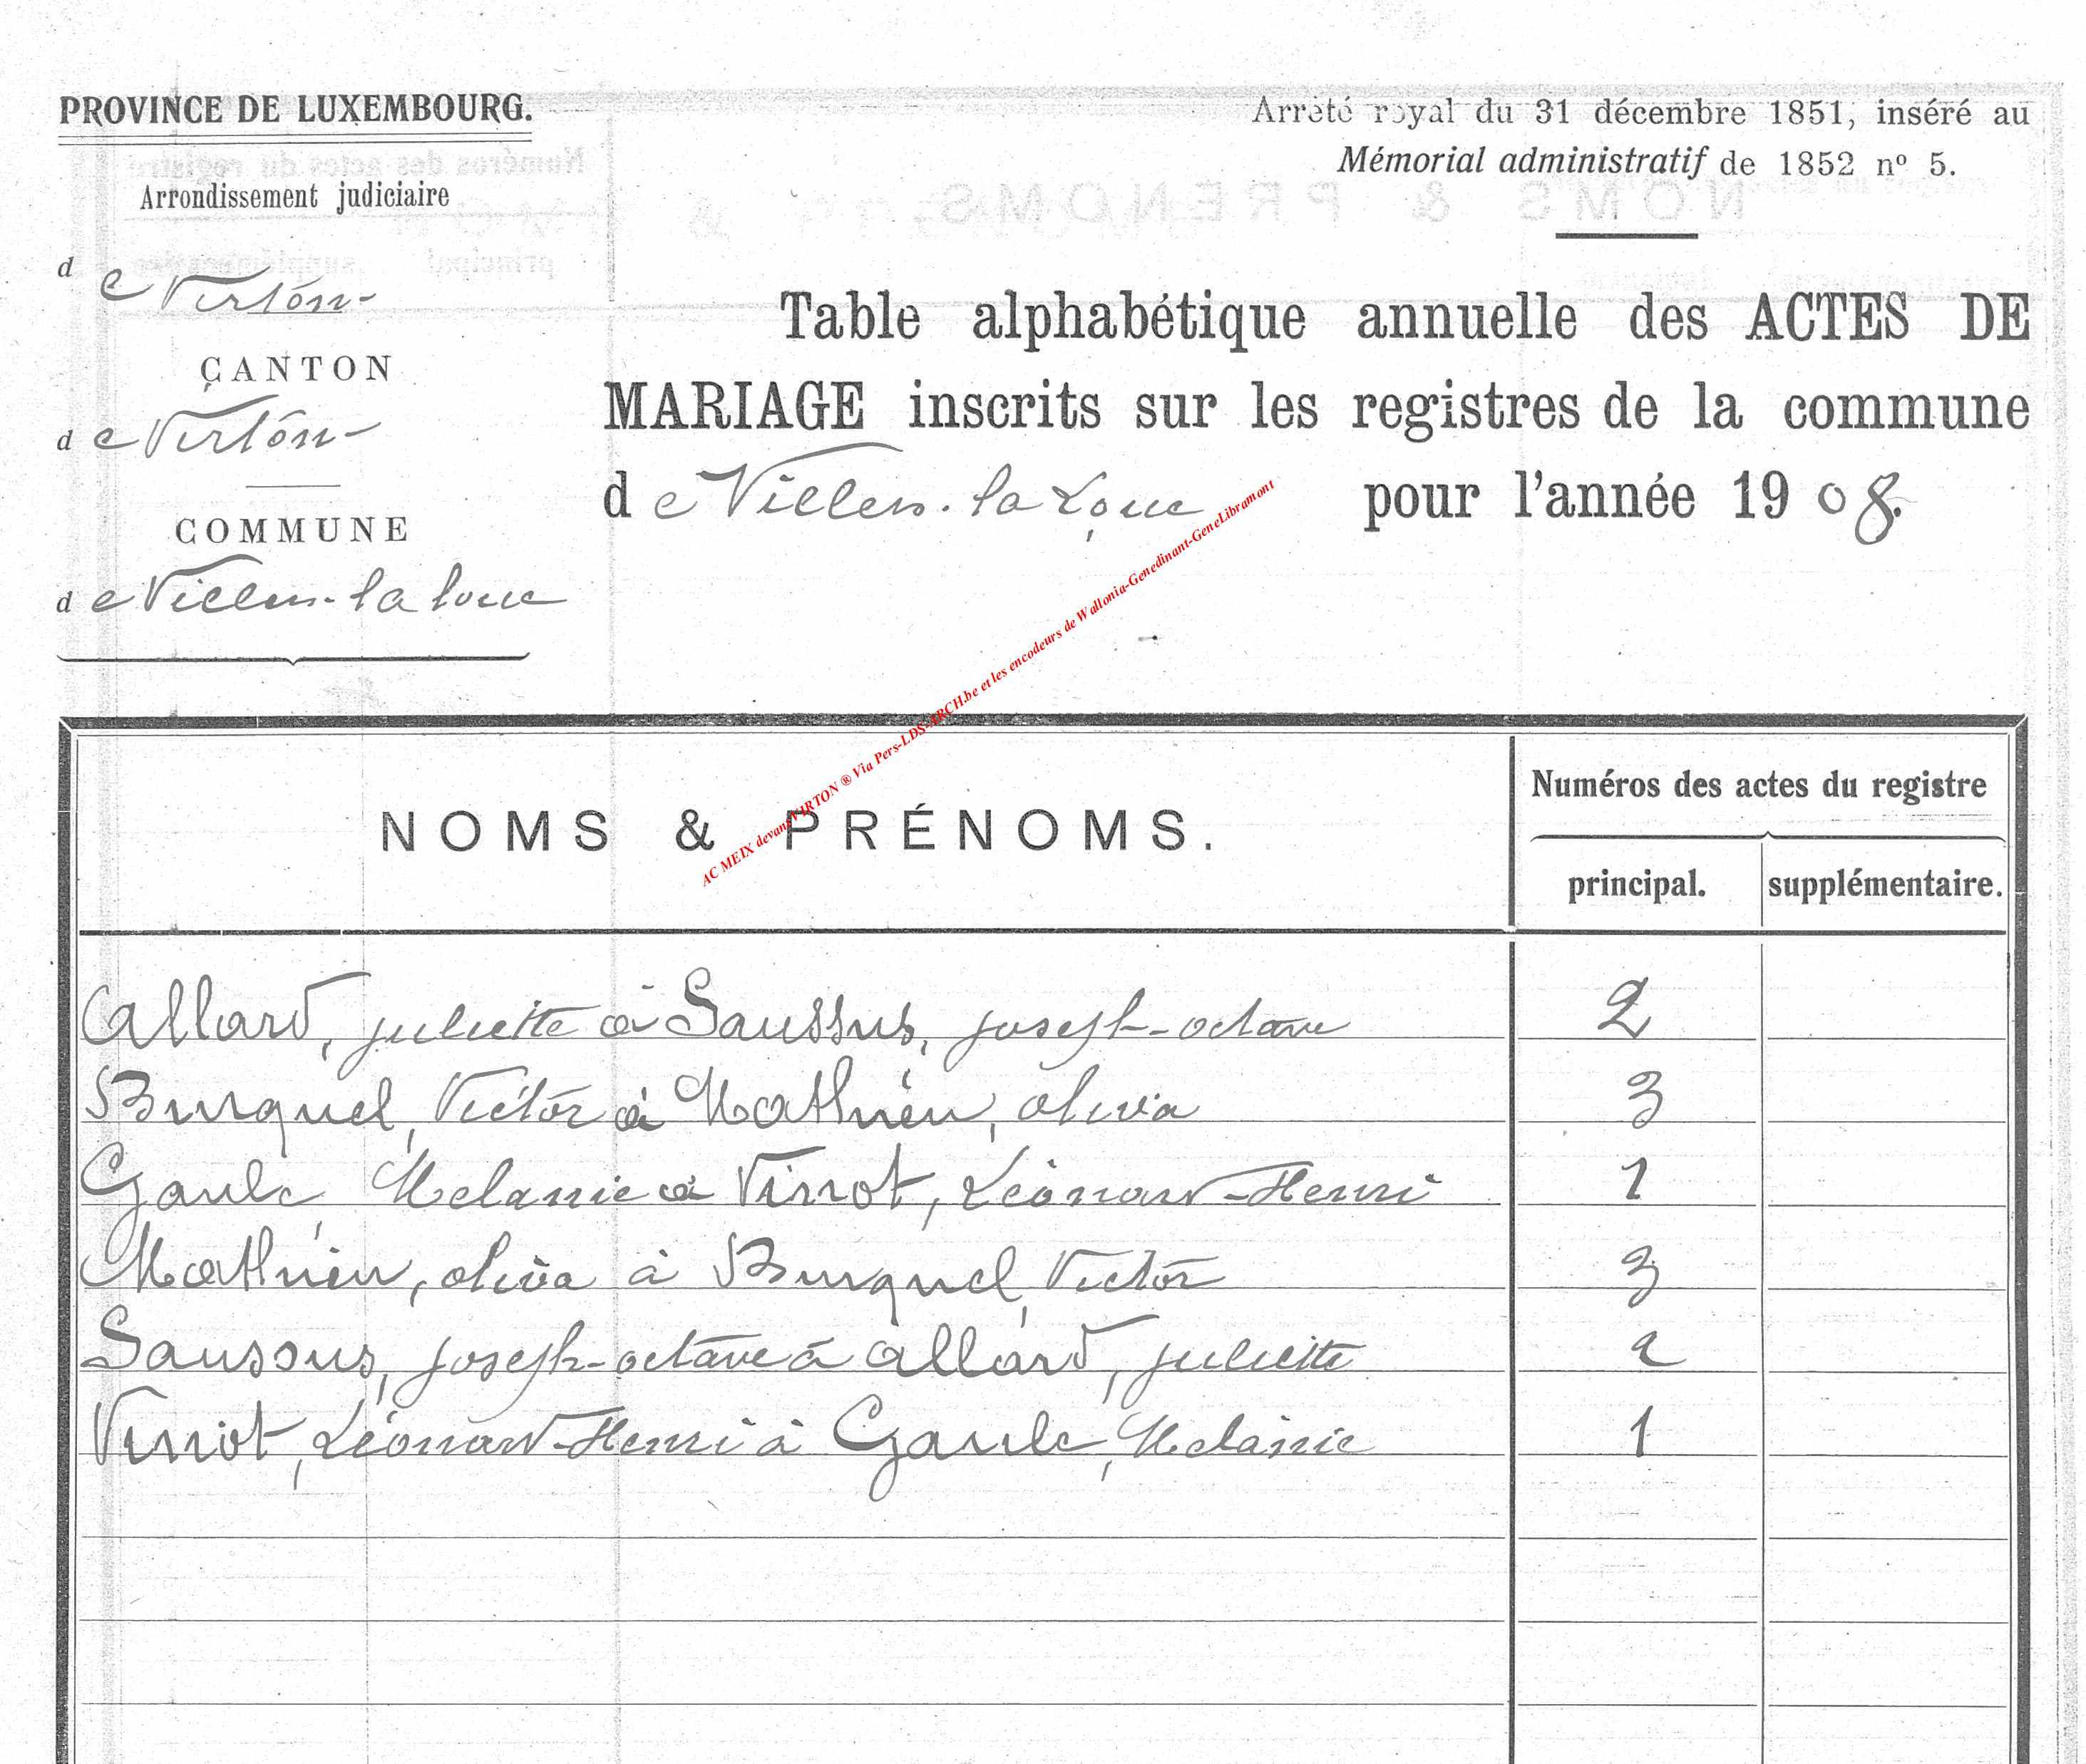 PROVINCE DE LUXEMBOURG.
Arrondissement judiciaire
de Virton
CANTON
de Virton
COMMUNE
de Villers-la-loue
Arrêté royal du 31 décembre 1851, inséré au
Mémorial administratif de 1852 nº 5.
Table alphabétique annuelle des ACTES DE
MARIAGE inscrits sur les registres de la commune
de Villers-la Loue pour l'année 1908.
AC MEIX devant VIRTON ® Via Pers-LDS-ARCH.be et les encodeurs de Wallonia-Genedinant-GeneLibramont
NOMS & PRÉNOMS.
Numéros des actes du registre
principal. supplémentaire.
Allard, juliette à Saussus, joseph-octave 2
Burquel, Victor à Mathieu, oliva 3
Gaule, Melanie à Virrot, Léonard-Henri 1
Mathieu, oliva à Burquel, Victor 3
Saussus, joseph-octave à allard, juliette 2
Virrot, Léonard-Henri à Gaule, Mélanie 1